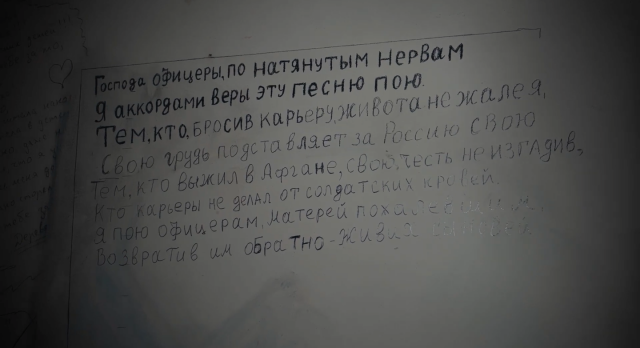 Господа офицеры, по натянутым нервам
Я аккордами веры эту песню пою.
Тем, кто, бросив карьеру, живота не жалея,
Свою грудь подставляет за Россию свою
Тем, кто выжил в Афгане, свою честь не изгадив,
Кто карьеры не делал от солдатских кровей.
Я пою офицерам, матерей
Возвратив им обратно - живых